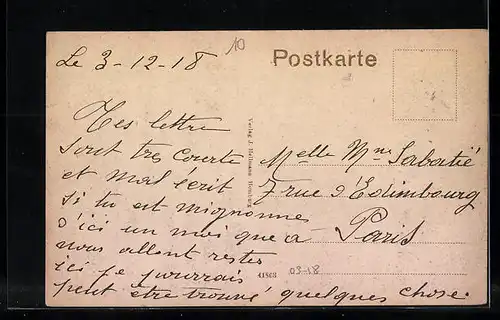 Le 3-12-18
10
Postkarte
Tes lettre
sont tres courte
et mal écrit
si tu est mignonne
d'ici un moi que a
nous allont rester
ici je pourrais
peut etre trouvé quelques chose.
Verlag J. Homburg
Melle Mne Sabatié
7 rue d'Edimbourg
Paris
03-18